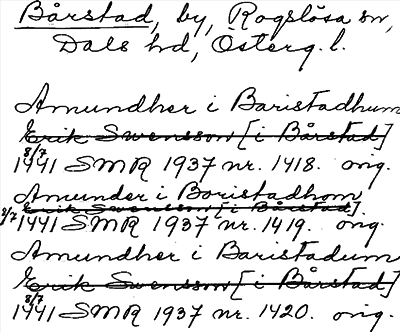 Bårstad, by, Rogslösa sn,
Dals hd, Österg. l.
Amundher i Baristadhum
Erik Swensson [i Bårstad]
8/7
1441 SMR 1937 nr. 1418. orig.
Amunder i Baristadhom
Erik Swensson [i Bårstad]
8/7 1441 SMR 1937 nr. 1419. orig.
Amundher i Baristadum
Erik Swensson [i Bårstad]
8/7
1441 SMR 1937 nr. 1420. orig.